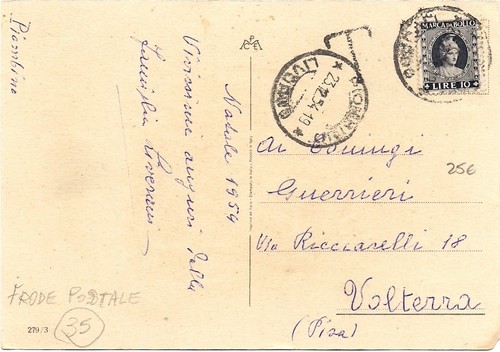 Piombino
Natale 1954
Vivissimi auguri dalla
famiglia
FRODE POSTALE
35
279/3
T
PIOMBINO
23.12.54.19
(LIVORNO)
MARCA DA BOLLO
LIRE 10
25€
Ai Coniugi
Guerrieri
Via Ricciarelli 18
Volterra
(Pisa)